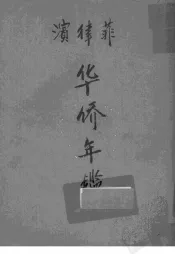 菲律濱
华侨年鑑